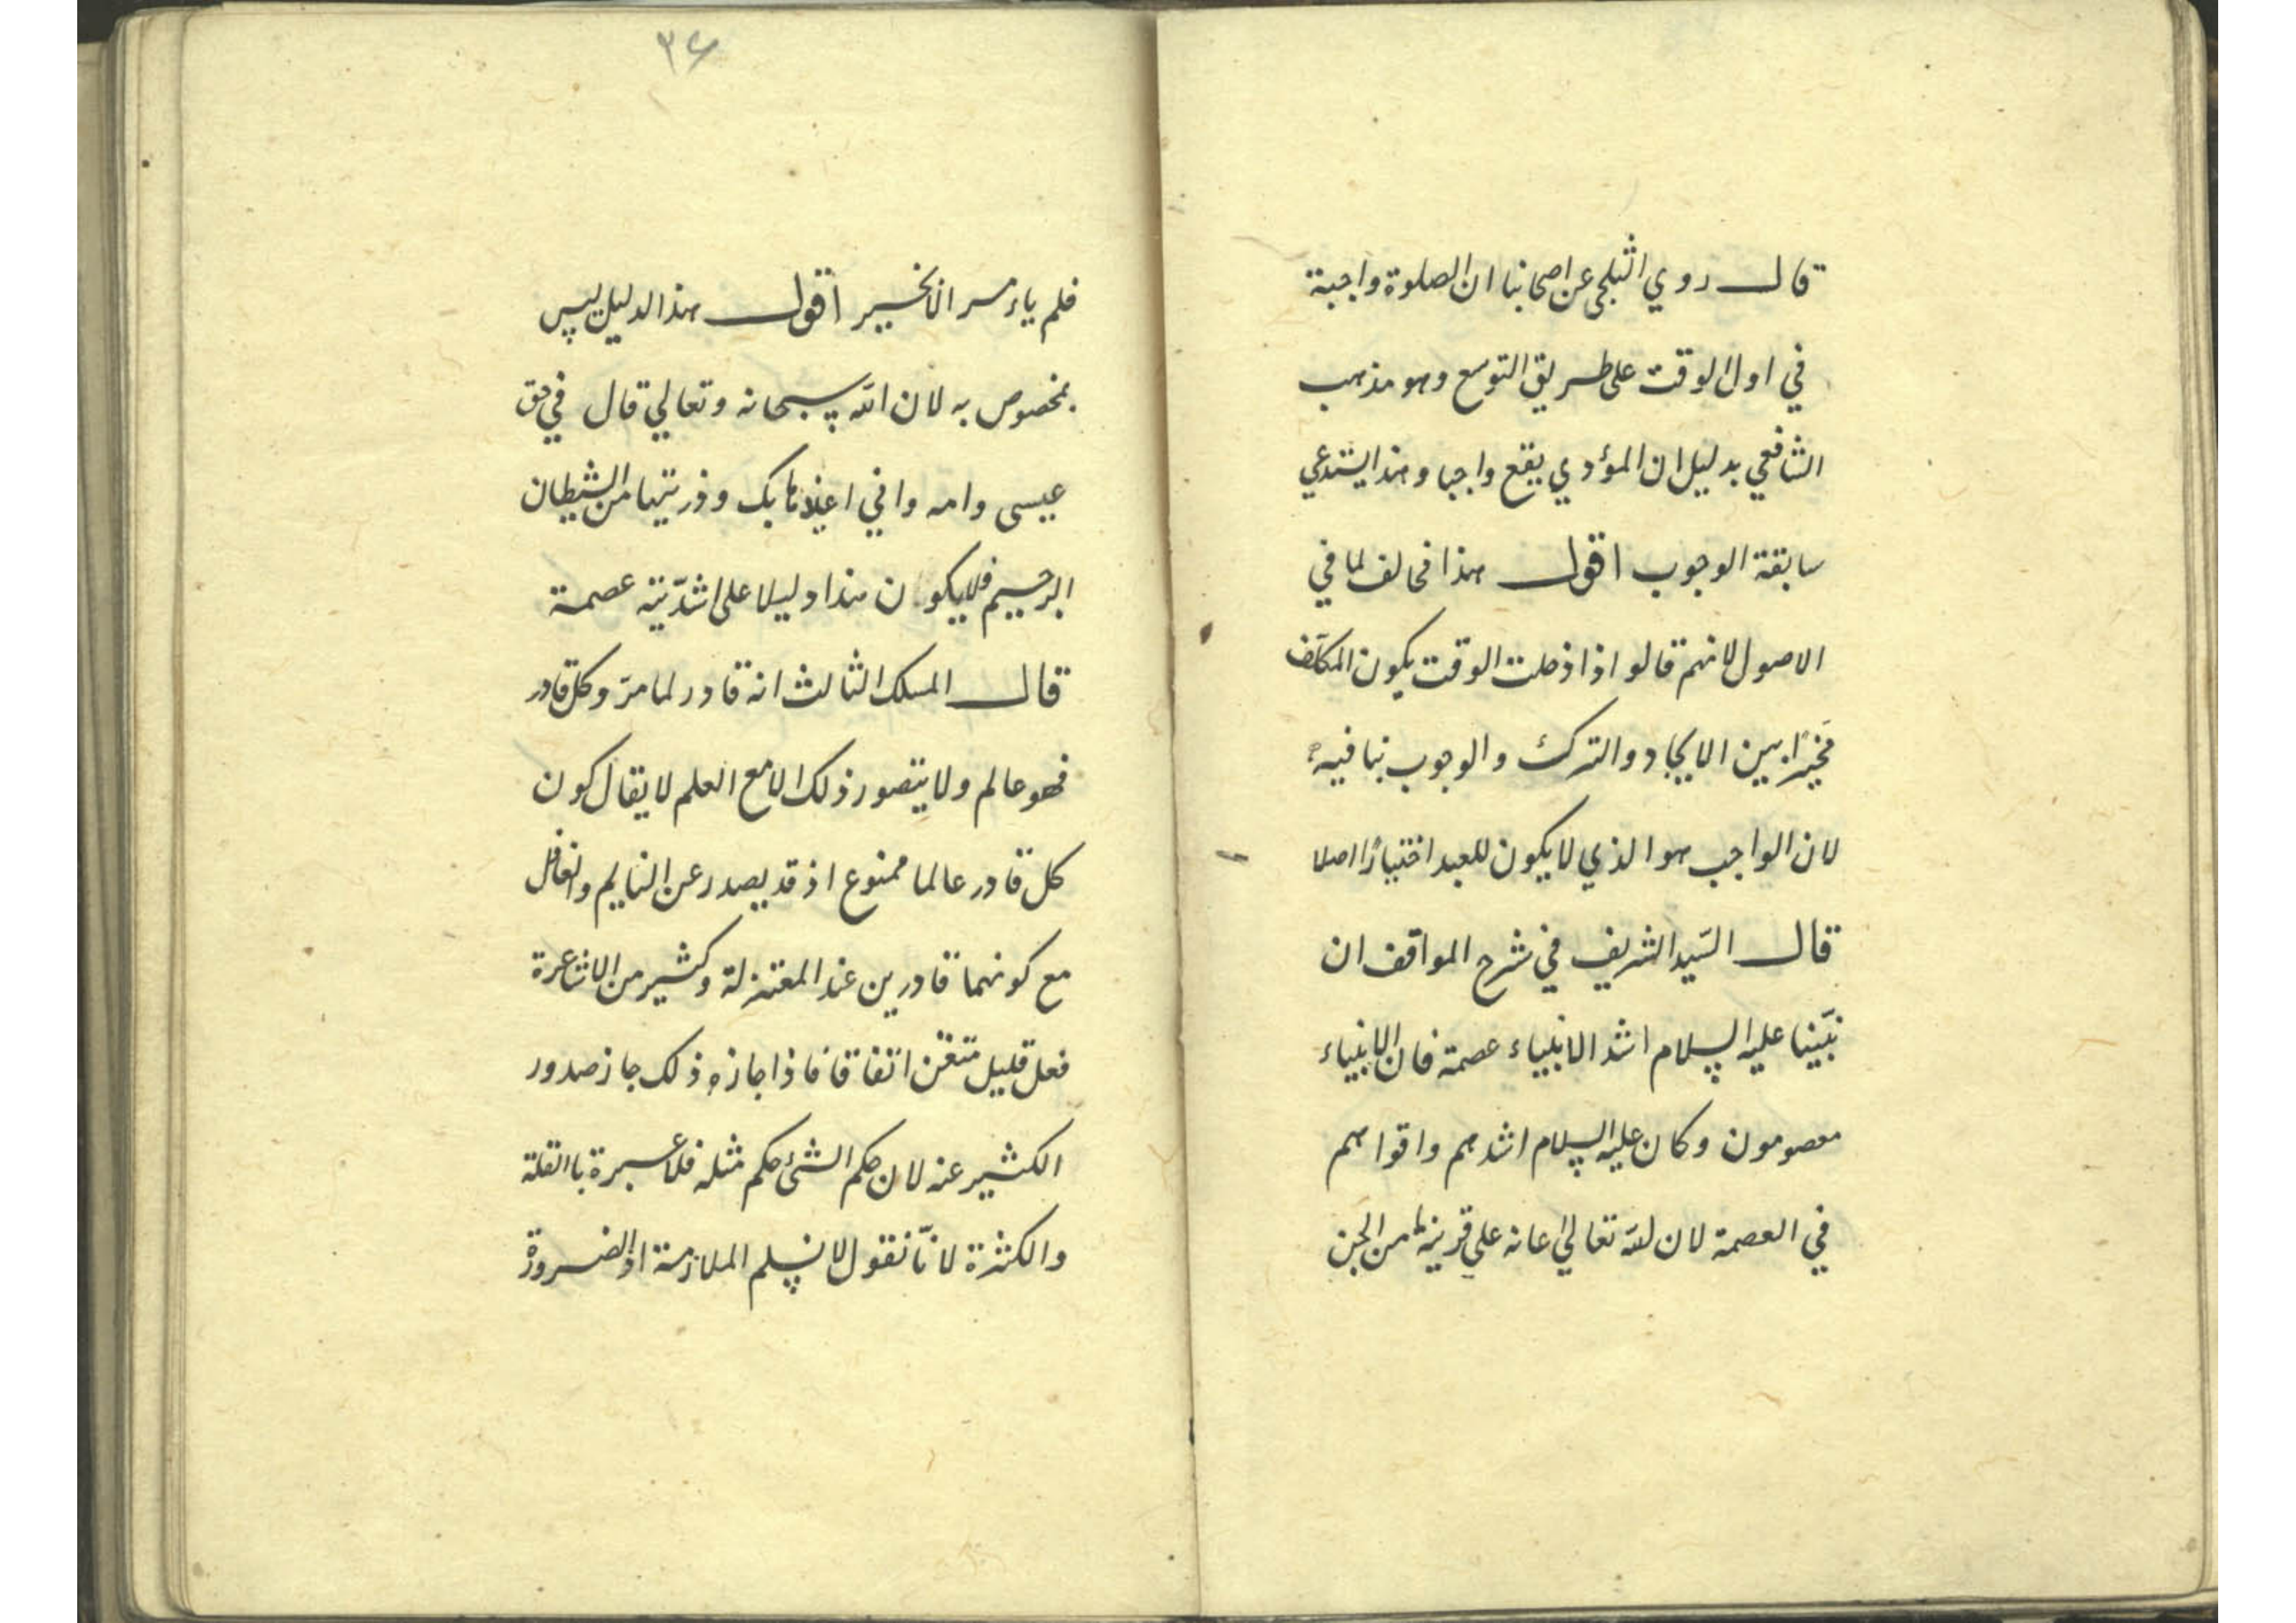 قال روي الثلجي عن اصحابنا ان الصلوة واجبة
في اول الوقت على طريق التوسع وهو مذهب
الشافعي بدليل ان المؤدي يقع واجبا وهذا يستدعي
سابقة الوجوب اقول هذا مخالف لما في
الاصول لانهم قالوا اذا دخلت الوقت يكون المكلف
مخيرًا بين الايجاد والترك والوجوب ينافيه
لان الواجب هو الذي لا يكون للعبد اختيارًا اصلا
قال السّيد الشريف في شرح المواقف ان
نبّينا عليه السلام اشد الانبياء عصمة فان الانبياء
معصومون وكان عليه السلام اشدهم واقواهم
في العصمة لان لله تعالى اعانه على قرينه من الجن
٣٤
فلم ياءمر الا بخير اقول هذا الدليل ليس
بمخصوص به لان الله سبحانه وتعالي قال في حق
عيسى وامه واني اعيذها بك وذريتها من الشيطان
الرجيم فلا يكون هذا دليلا على اشدّيته عصمة
قال المسلك الثالث انه قادر لما مرّ وكل قادر
فهو عالم ولا يتصور ذلك الا مع العلم لا يقال كون
كل قادر عالما ممنوع اذ قد يصدر عن النايم والغافل
مع كونهما قادرين عند المعتزلة وكثير من الاشاعرة
فعل قليل متقن اتفاقا فاذا جاز ذلك جاز صدور
الكثير عنه لان حكم الشئ حكم مثله فلا عبرة باالقلة
والكثرة لانّا نقول لا نسلم الملازمة اذ الضرورة